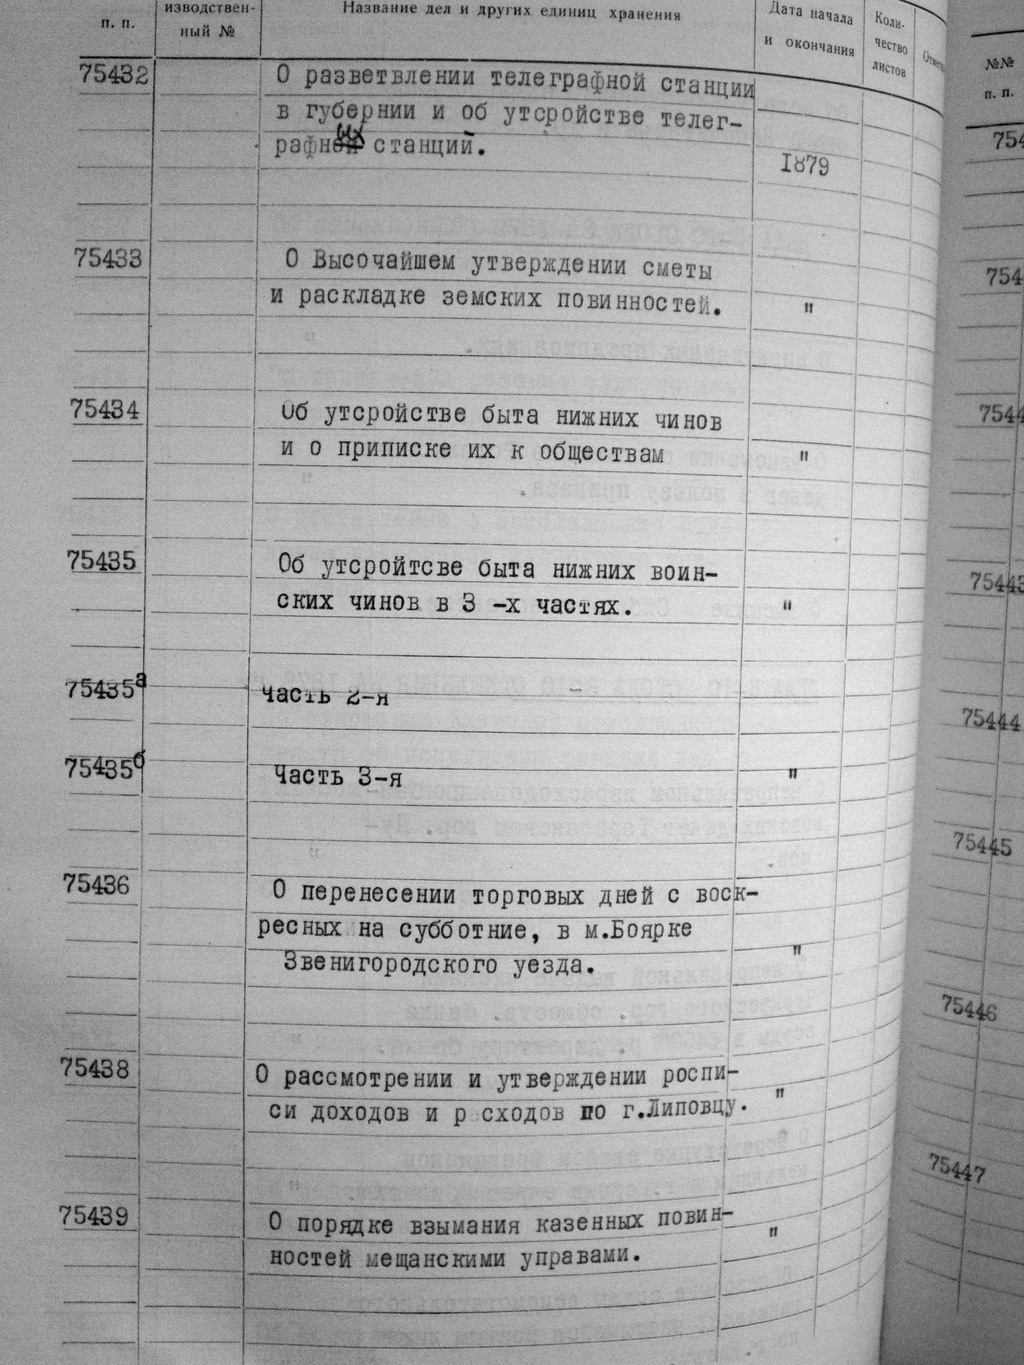 п. п.
изводствен-
ный №
Название дел и других единиц хранения
Дата начала
и окончания
Коли-
чество
листов
№№
п. п.
75432
О разветвлении телеграфной станции
в губернии и об утсройстве телег-
рафных станций.
1879
75433
О Высочайшем утверждении сметы
и раскладке земских повинностей.
"
75434
Об утсройстве быта нижних чинов
и о приписке их к обществам
"
75435
Об утсройтсве быта нижних воин-
ских чинов в 3 -х частях.
"
75435а
Часть 2-я
75435б
Часть 3-я
"
75436
О перенесении торговых дней с воск-
ресных на субботние, в м.Боярке
Звенигородского уезда.
"
75438
О рассмотрении и утверждении роспи-
си доходов и р сходов по г.Липовцу.
"
75439
О порядке взымания казенных повин-
ностей мещанскими управами.
"
75443
75444
75445
75446
75447